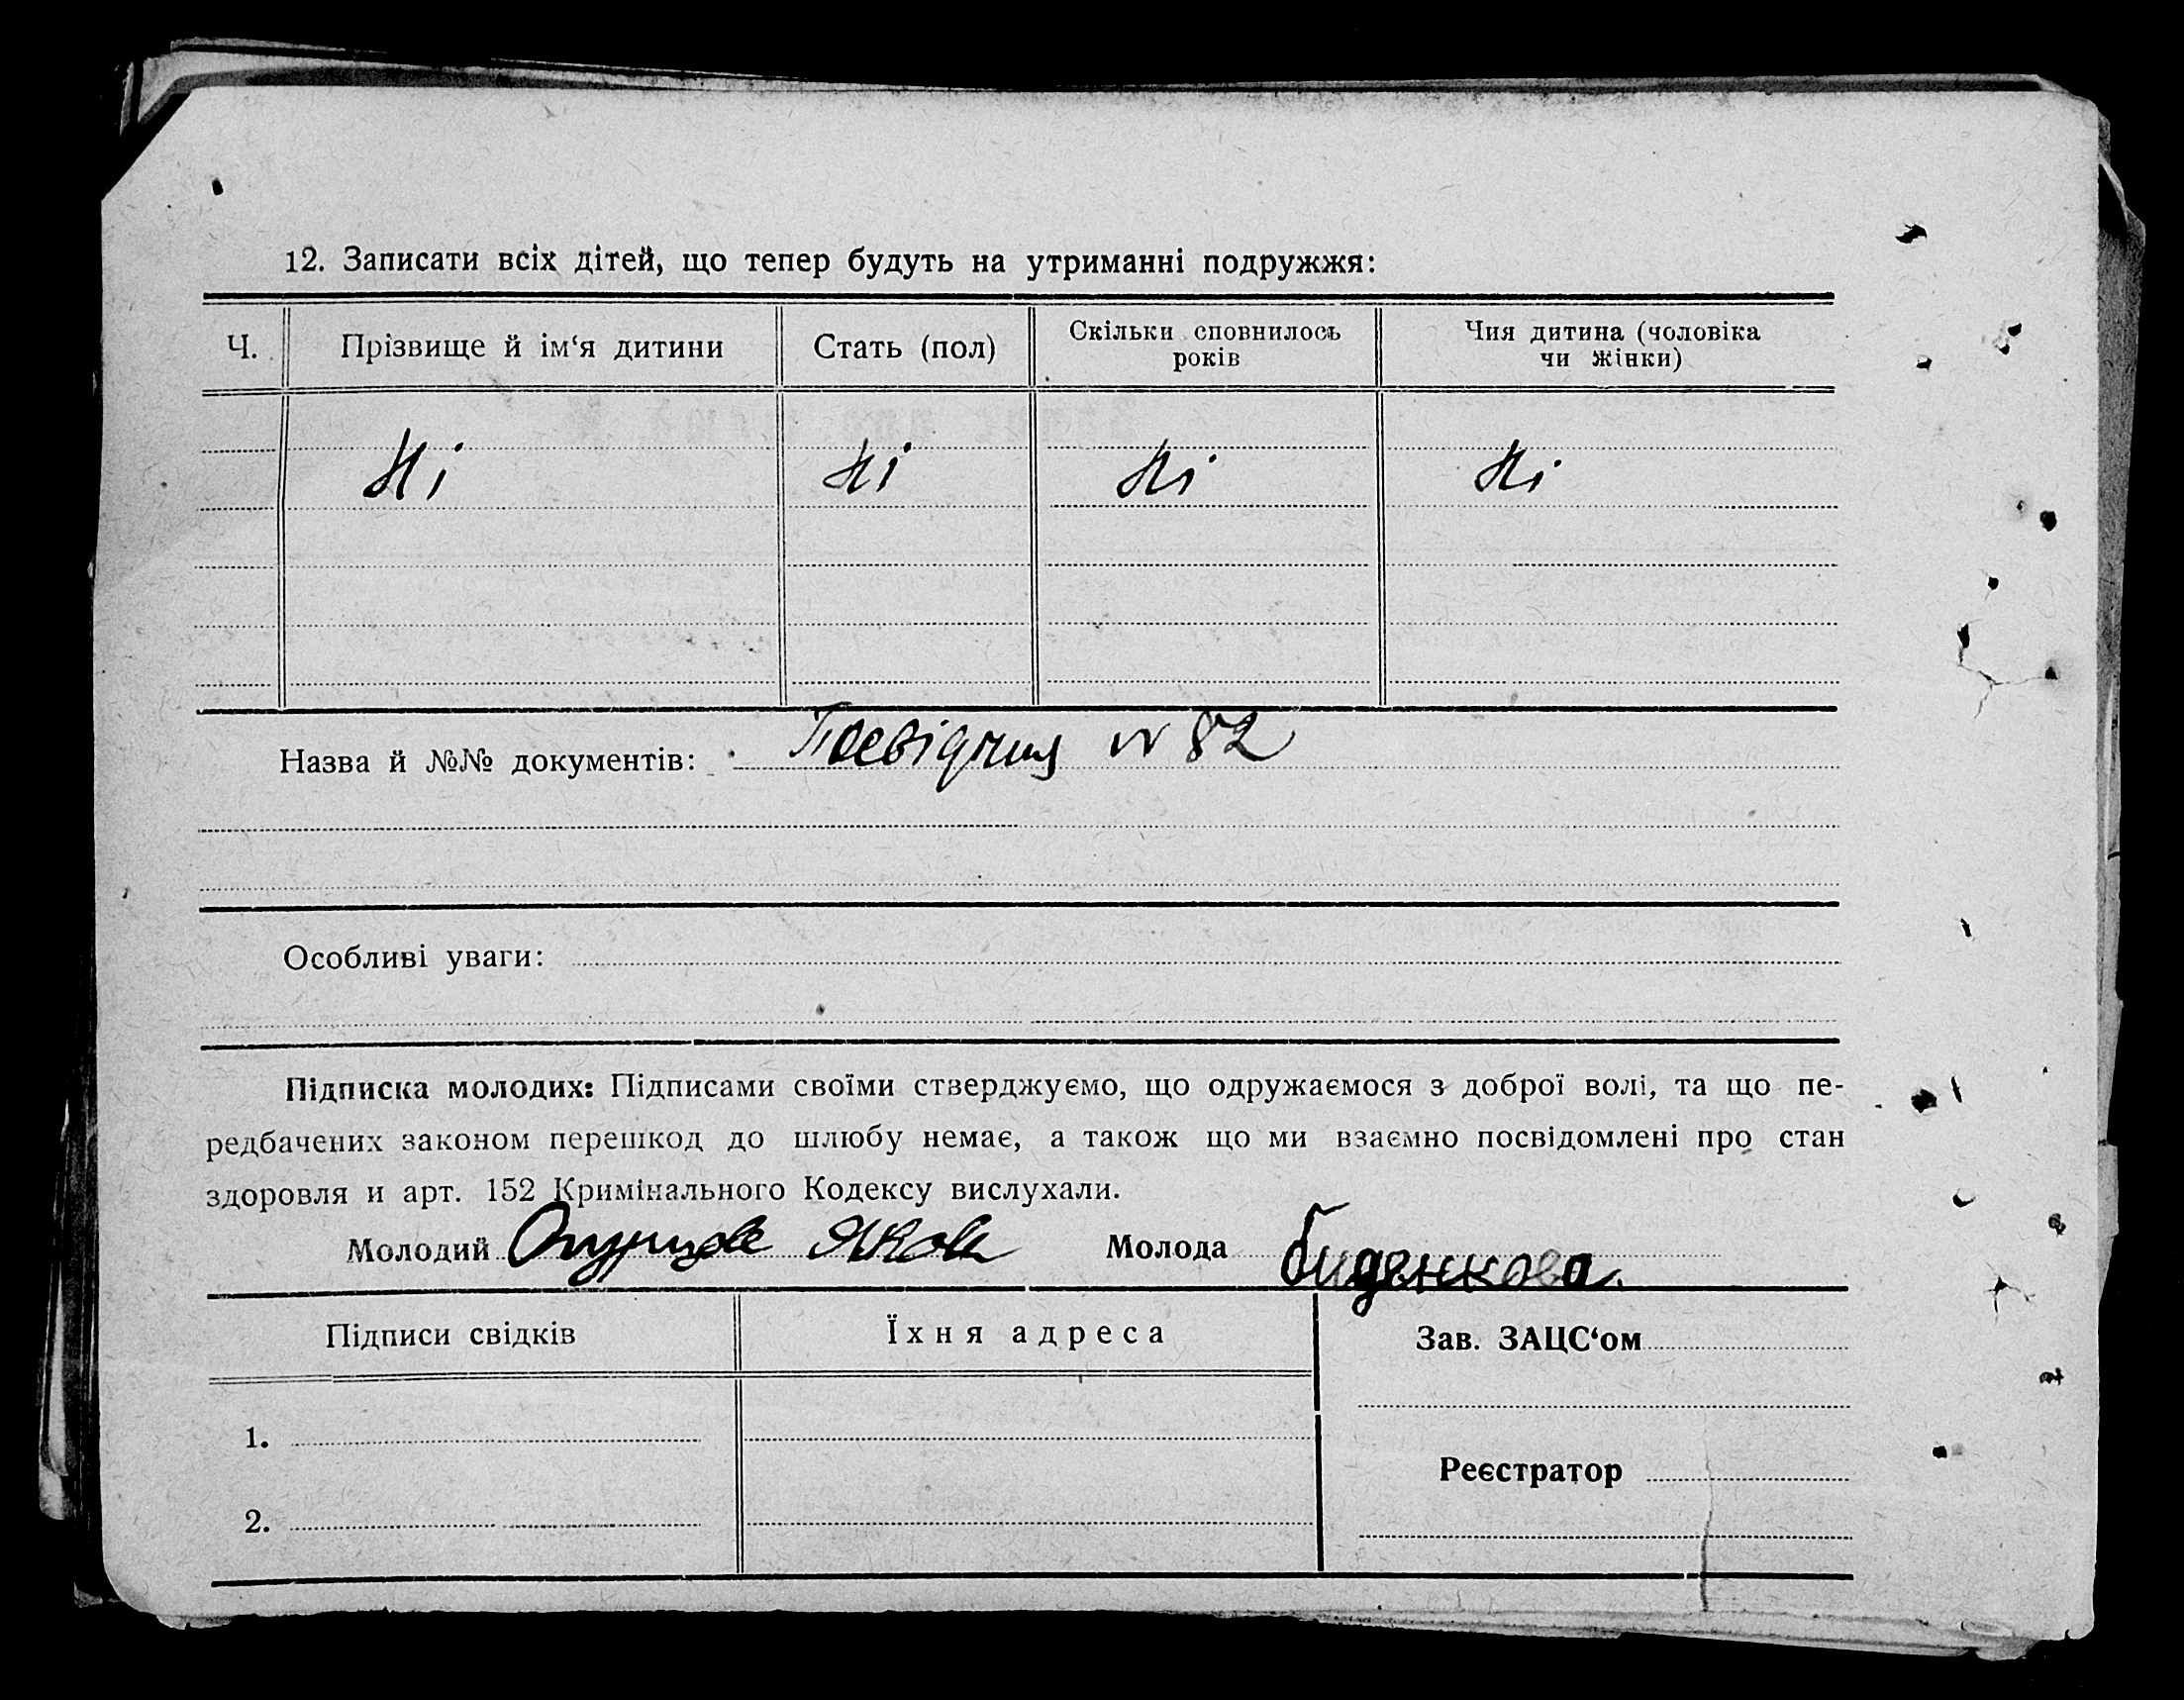 12. Записати всіх дітей, що тепер будуть на утриманні подружжя:
Ч. Прізвище й ім‘я дитини Стать (пол) Скільки сповнилось років Чия дитина (чоловіка чи жінки)
Ні Ні Ні Ні
Назва й №№ документів: Посвідчння № 82
Особливі уваги:
Підписка молодих: Підписами своїми стверджуємо, що одружаємося з доброї волі, та що пе-
редбачених законом перешкод до шлюбу немає, а також що ми взаємно посвідомлені про стан
здоровля и арт. 152 Кримінального Кодексу вислухали.
Молодий Яков Молода Биденкова.
Підписи свідків Їхня адреса Зав. ЗАЦС‘ом
1.
Реєстратор
2.